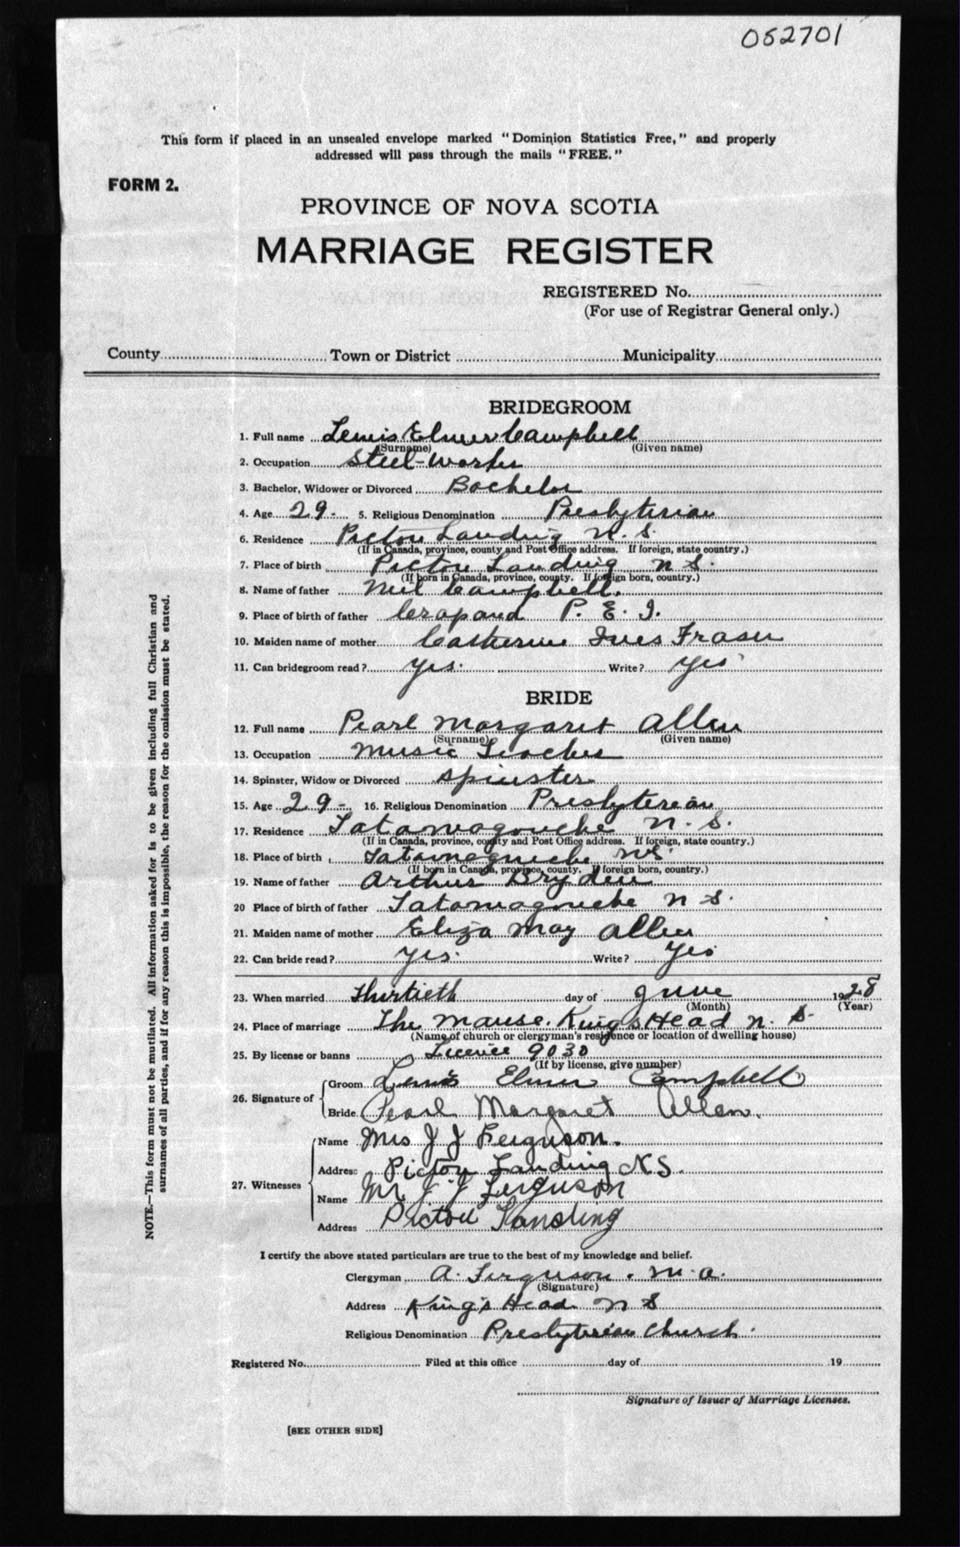 052701
This form if placed in an unsealed envelope marked "Dominion Statistics Free," and properly
addressed will pass through the mails "FREE."
FORM 2.
PROVINCE OF NOVA SCOTIA
MARRIAGE REGISTER
REGISTERED No.
(For use of Registrar General only.)
County Town or District Municipality
BRIDEGROOM
1. Full name Lewis Elmer Campbell
(Surname) (Given name)
2. Occupation Steel-Worker
3. Bachelor, Widower or Divorced Bachelor
4. Age 29- 5. Religious Denomination Presbyterian
6. Residence Pictou Landing N.S.
(If in Canada, province, county and Post Office address. If foreign, state country.)
7. Place of birth Pictou Landing N S.
(If born in Canada, province, county. If foreign born, country.)
8. Name of father Neil Campbell.
9. Place of birth of father Crapaud P. E. I.
10. Maiden name of mother Catherine Ines Fraser
11. Can bridegroom read? yes. Write? yes
BRIDE
12. Full name Pearl Margaret Allen
(Surname) (Given name)
13. Occupation Music Teacher
14. Spinster, Widow or Divorced Spinster
15. Age 29- 16. Religious Denomination Presbyterian
17. Residence Tatamagouche N.S.
(If in Canada, province, county and Post Office address. If foreign, state country.)
18. Place of birth Tatamagouche NS
(If born in Canada, province, county. If foreign born, country.)
19. Name of father Arthur Bryden
20 Place of birth of father Tatamagouche N S.
21. Maiden name of mother Eliza May Allen
22. Can bride read? yes. Write? Yes
23. When married Thirtieth day of June 1928
(Month) (Year)
24. Place of marriage The Manse. King's Head N. S.
(Name of church or clergyman's residence or location of dwelling house)
25. By license or banns Licence 9030
(If by license, give number)
26. Signature of Groom Lewis Elmer Campbell
Bride Pearl Margaret Allen.
27. Witnesses Name Mrs J J Ferguson.
Address Pictou Landing NS.
Name Mr J. J Ferguson
Address Pictou Landing
I certify the above stated particulars are true to the best of my knowledge and belief.
Clergyman A. Ferguson. M.A.
(Signature)
Address King's Head N S
Religious Denomination Presbyterian Church.
Registered No. Filed at this office day of 19
Signature of Issuer of Marriage Licenses.
[SEE OTHER SIDE]
NOTE.—This form must not be mutilated. All information asked for is to be given including full Christian and
surnames of all parties, and if for any reason this is impossible, the reason for the omission must be stated.